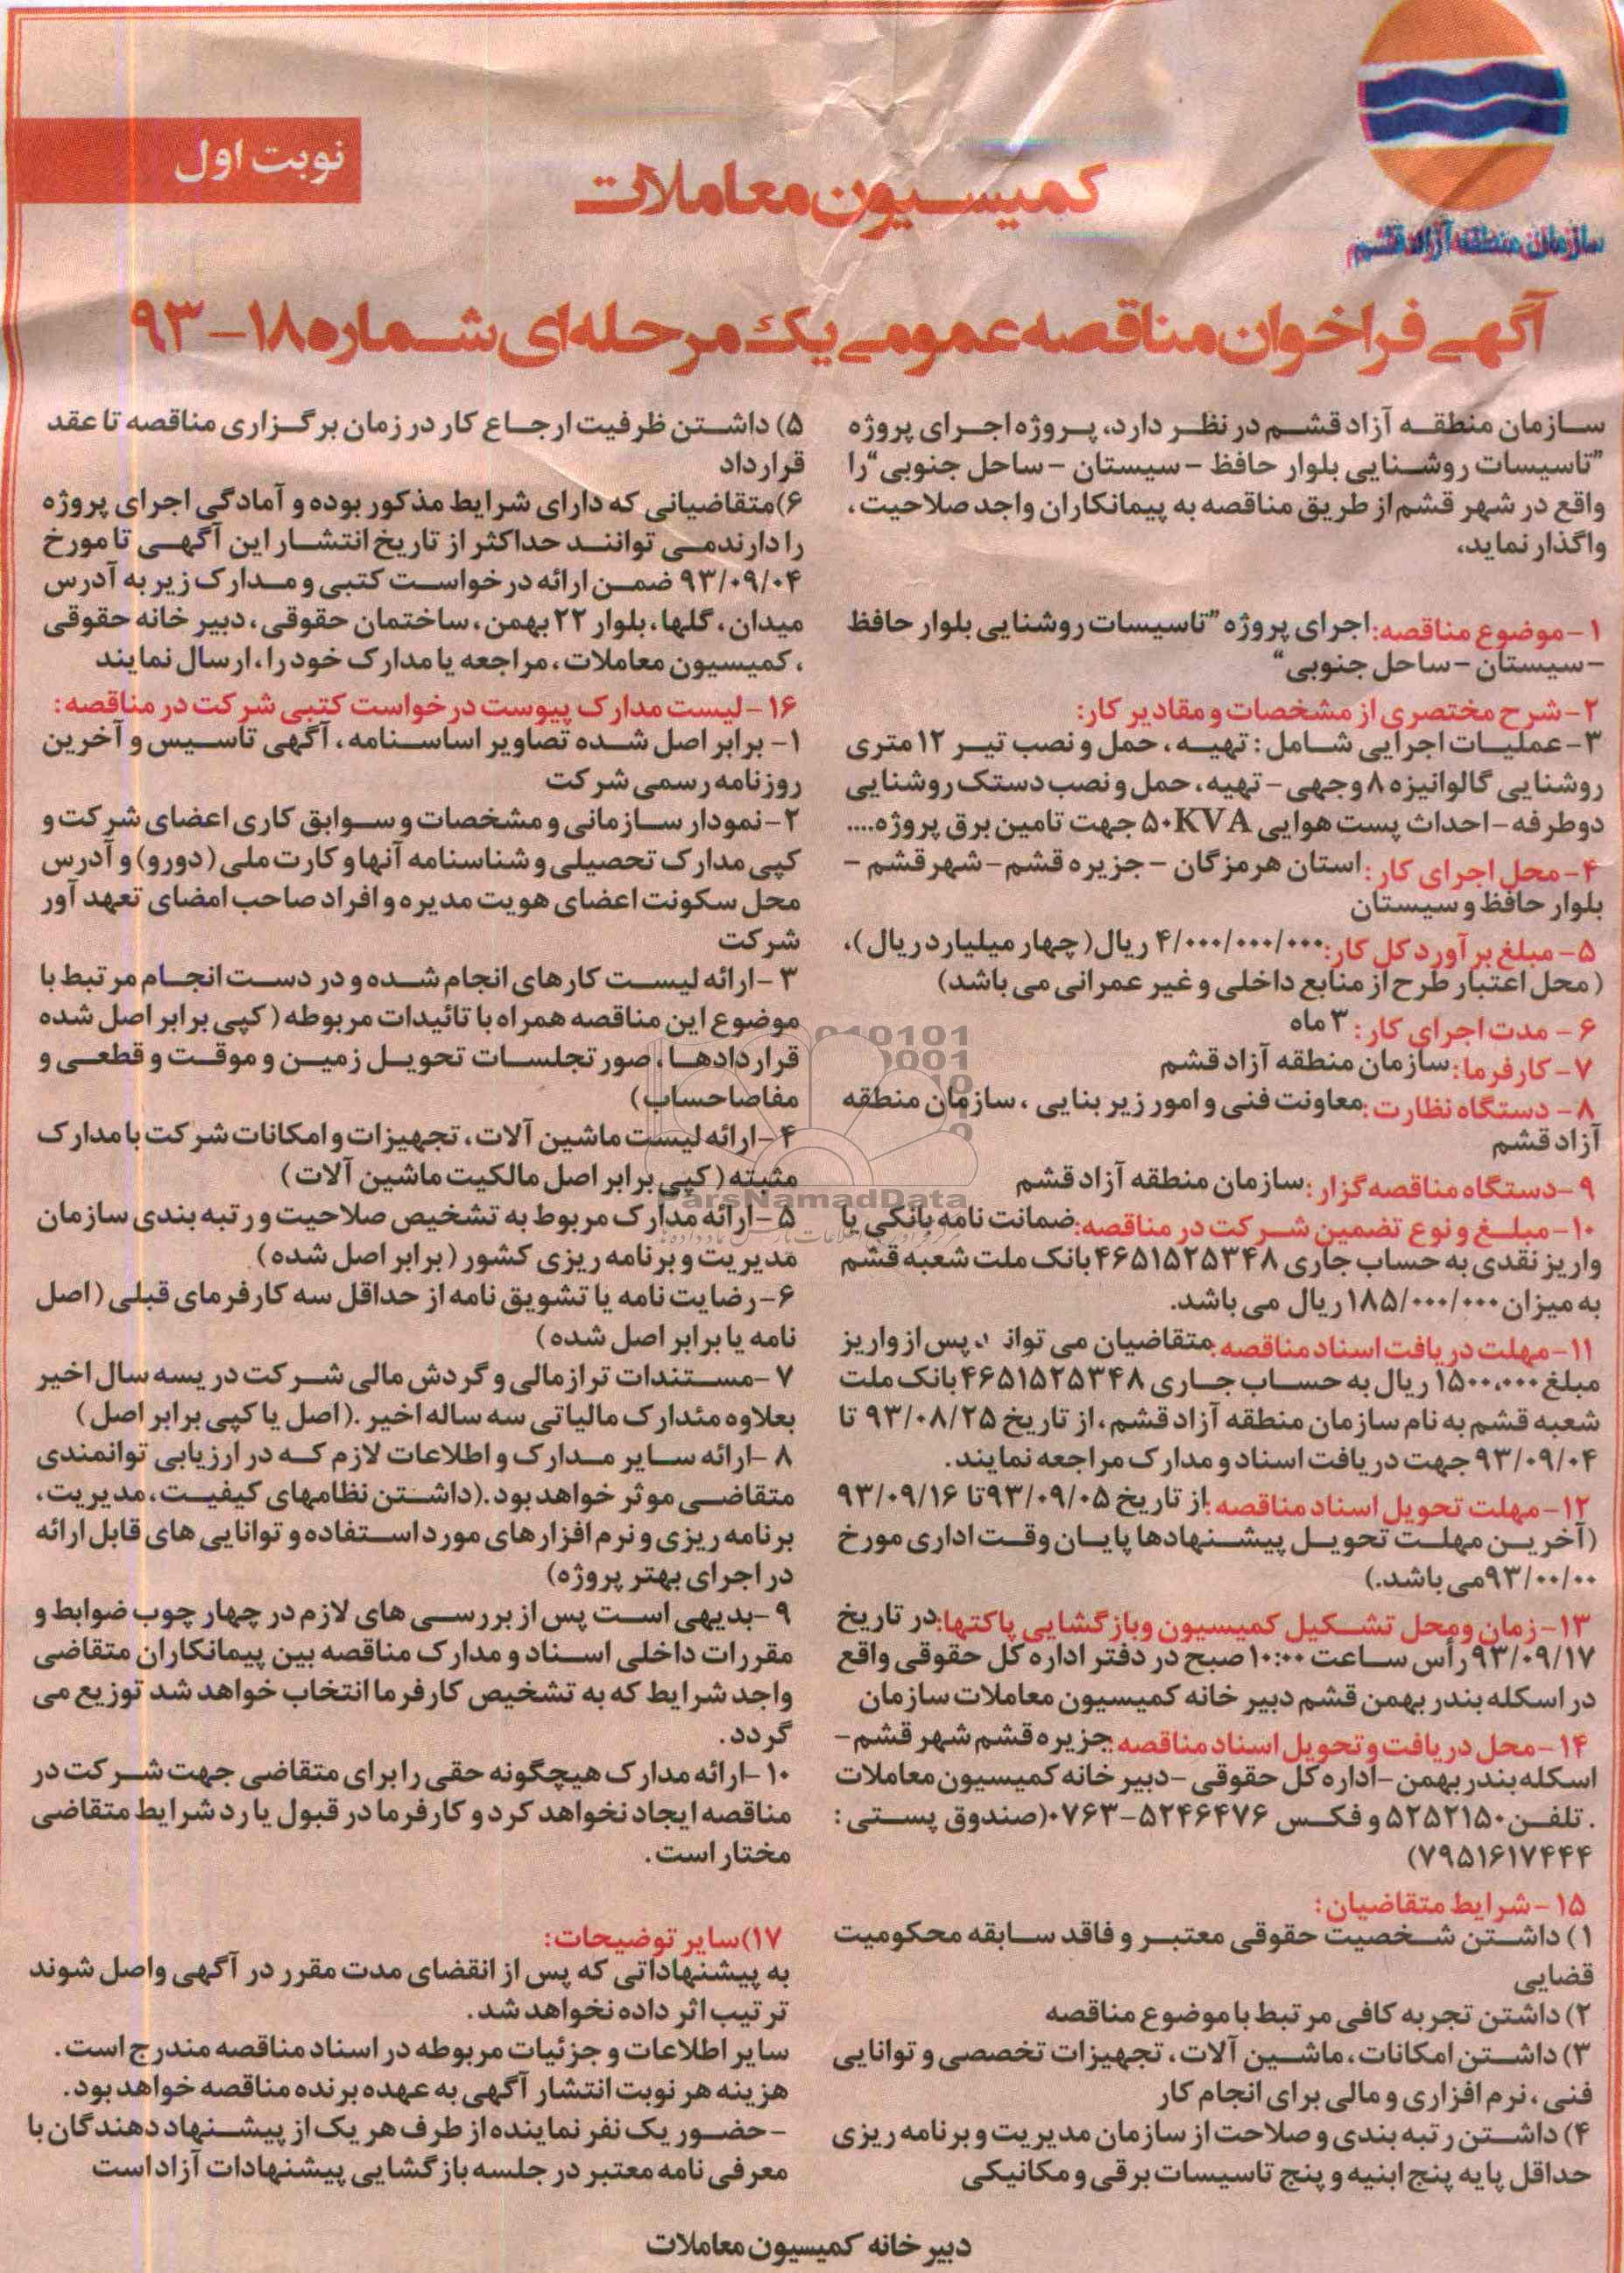 سازمان منطقه آزاد قشم
نوبت اول
کمیسیون معاملات
آگهی فراخوان مناقصه عمومی یک مرحله‌ای شماره ۱۸-۹۳
سازمان منطقه آزاد قشم در نظر دارد، پروژه اجرای پروژه
"تاسیسات روشنایی بلوار حافظ -سیستان -ساحل جنوبی"را
واقع در شهر قشم از طریق مناقصه به پیمانکاران واجد صلاحیت،
واگذار نماید،
۱-موضوع مناقصه:اجرای پروژه "تاسیسات روشنایی بلوار حافظ
-سیستان -ساحل جنوبی"
۲-شرح مختصری از مشخصات و مقادیر کار:
۳-عملیات اجرایی شامل: تهیه، حمل و نصب تیر ۱۲ متری
روشنایی گالوانیزه ۸ وجهی - تهیه، حمل و نصب دستک روشنایی
دوطرفه-احداث پست هوایی ۵۰KVA جهت تامین برق پروژه....
۴-محل اجرای کار: استان هرمزگان - جزیره قشم-شهر قشم -
بلوار حافظ و سیستان
۵- مبلغ برآورد کل کار:۴/۰۰۰/۰۰۰/۰۰۰ ریال(چهار میلیارد ریال)،
(محل اعتبار طرح از منابع داخلی و غیر عمرانی می باشد)
۶- مدت اجرای کار: ۳ ماه
۷- کارفرما:سازمان منطقه آزاد قشم
۸- دستگاه نظارت:معاونت فنی و امور زیر بنایی ،سازمان منطقه
آزاد قشم
۹-دستگاه مناقصه گزار:سازمان منطقه آزاد قشم
۱۰-مبلغ و نوع تضمین شرکت در مناقصه:ضمانت نامه بانکی یا
واریز نقدی به حساب جاری ۴۶۵۱۵۲۵۳۴۸ بانک ملت شعبه قشم
به میزان ۱۸۵/۰۰۰/۰۰۰ ریال می باشد.
۱۱-مهلت دریافت اسناد مناقصه:متقاضیان می توانند، پس از واریز
مبلغ ۱۵۰۰،۰۰۰ ریال به حساب جاری ۴۶۵۱۵۲۵۳۴۸ بانک ملت
شعبه قشم به نام سازمان منطقه آزاد قشم، از تاریخ ۹۳/۰۸/۲۵ تا
۹۳/۰۹/۰۴ جهت دریافت اسناد و مدارک مراجعه نمایند.
۱۲-مهلت تحویل اسناد مناقصه:از تاریخ ۹۳/۰۹/۰۵تا ۹۳/۰۹/۱۶
(آخرین مهلت تحویل پیشنهادها پایان وقت اداری مورخ
۹۳/۰۰/۰۰می باشد.)
۱۳-زمان و محل تشکیل کمیسیون وبازگشایی پاکتها:در تاریخ
۹۳/۰۹/۱۷رأس ساعت ۱۰:۰۰صبح در دفتر اداره کل حقوقی واقع
در اسکله بندر بهمن قشم دبیر خانه کمیسیون معاملات سازمان
۱۴-محل دریافت و تحویل اسناد مناقصه:جزیره قشم شهر قشم-
اسکله بندر بهمن -اداره کل حقوقی -دبیر خانه کمیسیون معاملات
. تلفن ۵۲۵۲۱۵۰ و فکس ۵۲۴۶۴۷۶-۰۷۶۳(صندوق پستی:
۷۹۵۱۶۱۷۴۴۴)
۱۵-شرایط متقاضیان:
۱) داشتن شخصیت حقوقی معتبر و فاقد سابقه محکومیت
قضایی
۲)داشتن تجربه کافی مرتبط با موضوع مناقصه
۳)داشتن امکانات، ماشین آلات، تجهیزات تخصصی و توانایی
فنی، نرم افزاری و مالی برای انجام کار
۴)داشتن رتبه بندی و صلاحت از سازمان مدیریت و برنامه ریزی
حداقل پایه پنج ابنیه و پنج تاسیسات برقی و مکانیکی
۵) داشتن ظرفیت ارجاع کار در زمان برگزاری مناقصه تا عقد
قرارداد
۶)متقاضیانی که دارای شرایط مذکور بوده و آمادگی اجرای پروژه
را دارند می توانند حداکثر از تاریخ انتشار این آگهی تا مورخ
۹۳/۰۹/۰۴ ضمن ارائه درخواست کتبی و مدارک زیر به آدرس
میدان، گلها، بلوار ۲۲ بهمن، ساختمان حقوقی، دبیر خانه حقوقی
، کمیسیون معاملات، مراجعه یا مدارک خود را، ارسال نمایند
۱۶-لیست مدارک پیوست درخواست کتبی شرکت در مناقصه:
۱- برابر اصل شده تصاویر اساسنامه، آگهی تاسیس و آخرین
روزنامه رسمی شرکت
۲-نمودار سازمانی و مشخصات و سوابق کاری اعضای شرکت و
کپی مدارک تحصیلی و شناسنامه آنها و کارت ملی (دورو) و آدرس
محل سکونت اعضای هویت مدیره و افراد صاحب امضای تعهد آور
شرکت
۳-ارائه لیست کارهای انجام شده و در دست انجام مرتبط با
موضوع این مناقصه همراه با تائیدات مربوطه (کپی برابر اصل شده
قراردادها، صورتجلسات تحویل زمین و موقت و قطعی و
مفاصاحساب)
۴-ارائه لیست ماشین آلات، تجهیزات و امکانات شرکت با مدارک
مثبته (کپی برابر اصل مالکیت ماشین آلات)
۵-ارائه مدارک مربوط به تشخیص صلاحیت و رتبه بندی سازمان
مدیریت و برنامه ریزی کشور (برابر اصل شده)
۶-رضایت نامه یا تشویق نامه از حداقل سه کارفرمای قبلی (اصل
نامه یا برابر اصل شده)
۷-مستندات ترازمالی و گردش مالی شرکت در یسه سال اخیر
بعلاوه مئدارک مالیاتی سه ساله اخیر.(اصل یا کپی برابر اصل)
۸-ارائه سایر مدارک و اطلاعات لازم که در ارزیابی توانمندی
متقاضی موثر خواهد بود.(داشتن نظامهای کیفیت، مدیریت،
برنامه ریزی و نرم افزارهای مورد استفاده و توانایی های قابل ارائه
در اجرای بهتر پروژه)
۹-بدیهی است پس از بررسی های لازم در چهار چوب ضوابط و
مقررات داخلی اسناد و مدارک مناقصه بین پیمانکاران متقاضی
واجد شرایط که به تشخیص کارفرما انتخاب خواهد شد توزیع می
گردد.
۱۰-ارائه مدارک هیچگونه حقی را برای متقاضی جهت شرکت در
مناقصه ایجاد نخواهد کرد و کارفرما در قبول یا رد شرایط متقاضی
مختار است.
۱۷)سایر توضیحات:
به پیشنهاداتی که پس از انقضای مدت مقرر در آگهی واصل شوند
ترتیب اثر داده نخواهد شد.
سایر اطلاعات و جزئیات مربوطه در اسناد مناقصه مندرج است.
هزینه هر نوبت انتشار آگهی به عهده برنده مناقصه خواهد بود.
-حضور یک نفر نماینده از طرف هر یک از پیشنهاد دهندگان با
معرفی نامه معتبر در جلسه بازگشایی پیشنهادات آزاد است
دبیر خانه کمیسیون معاملات
ParsNamadData